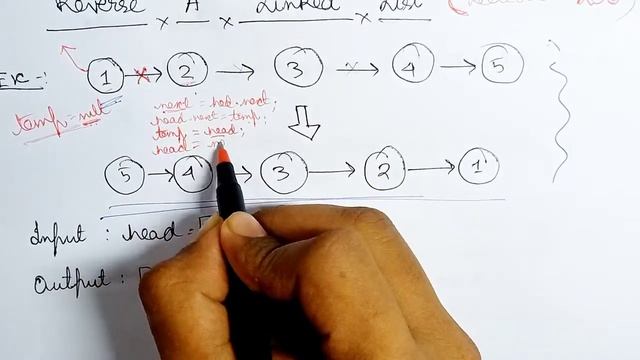 Reverse A Linked List
Ex :-
1 2 3 4 5
temp = null
next = hed.next
head.next = temp;
temp = head;
head = n
5 4 3 2 1
Input : head = [
Output : [